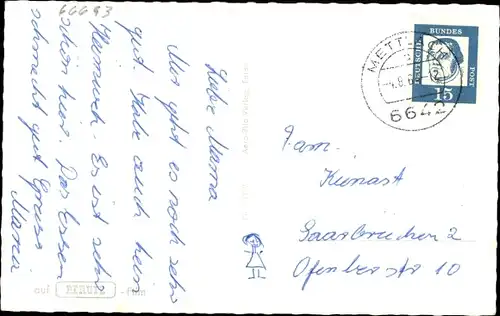 66693
Liebe Mama
Mir geht es noch sehr
gut. Habe auch kein
Heimweh. Es ist sehr
schön hier. Das Essen
schmeckt gut Gruss
Maria
auf PERUTZ -Film
METT
6642
DEUTSCHE
BUNDES
POST
15
Fam.
Kunast
Saarbrücken 2
Ofenbergstr 10